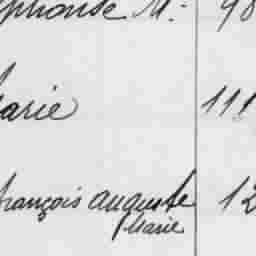 phonse M. 98
arie 111
rançois Auguste 12
Marie